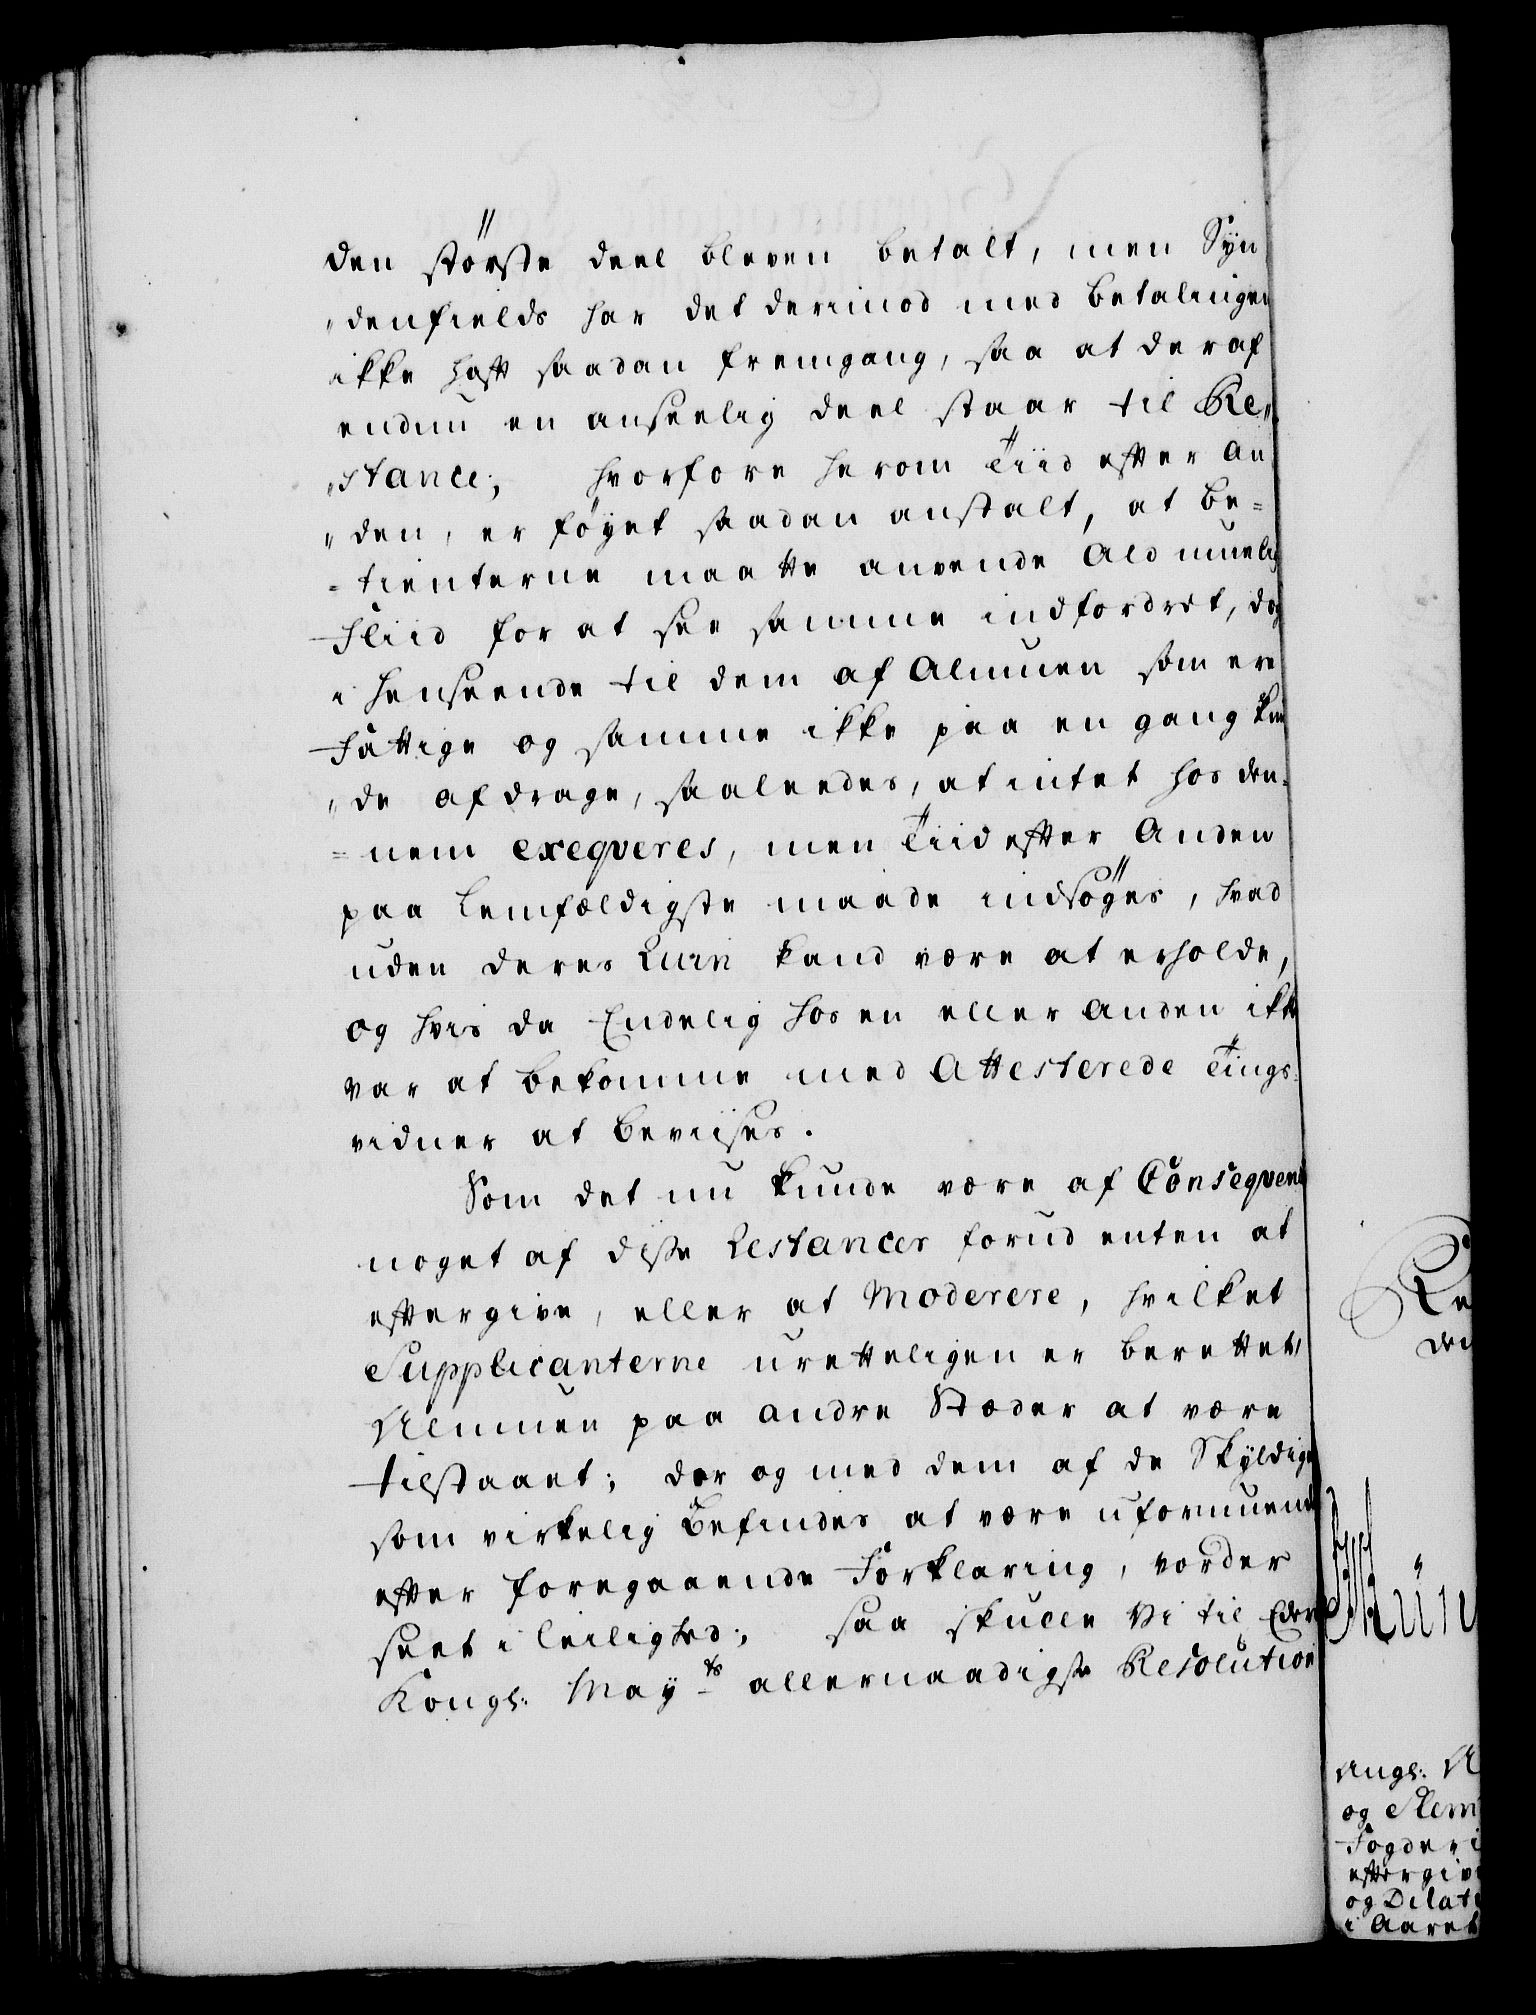 den störste deel bleven betalt, men Syn
„denfields har det derimod med Betalingen
ikke haft saadan fremgang, saa at deraf
endnu en anseelig deel staar til Re„
„stance; hvorfore herom Tiid efter an
„den, er föyet saadan anstalt, at be=
=tienterne maatte anvende Ald muelig
Fliid for at see samme indfordret, dog
i henseende til dem af Almuen som ere
Fattige og samme ikke paa en gang kun
„de afdrage, saaleedes, at intet hos den=
=nem exeqveres, men Tiid efter Anden
paa Lemfældigste maade indsöges, hvad
uden deres Ruin kand være at erholde,
og hvis da Endelig hos en eller anden ikke
var at bekomme med Attesterede Tings=
vidner at beviises.
Som det nu kunde være af Conseqvence
noget af disse Restancer forud enten at
eftergive, eller at Moderere, hvilket
Supplicanterne uretteligen er berettet,
Almuen paa andre Stæder at være
tilstaaet; der og med dem af de Skyldige
som virkelig befindes at være uformuende
efter foregaaende Forklaring, vorder
seet i leilighed; saa skulle Vi til Eders
Kongl: May:ts allernaadigste Resolution
Re
der
Angl: A
og Nem
Fogderi
eftergive
og Dilat
i Aaret